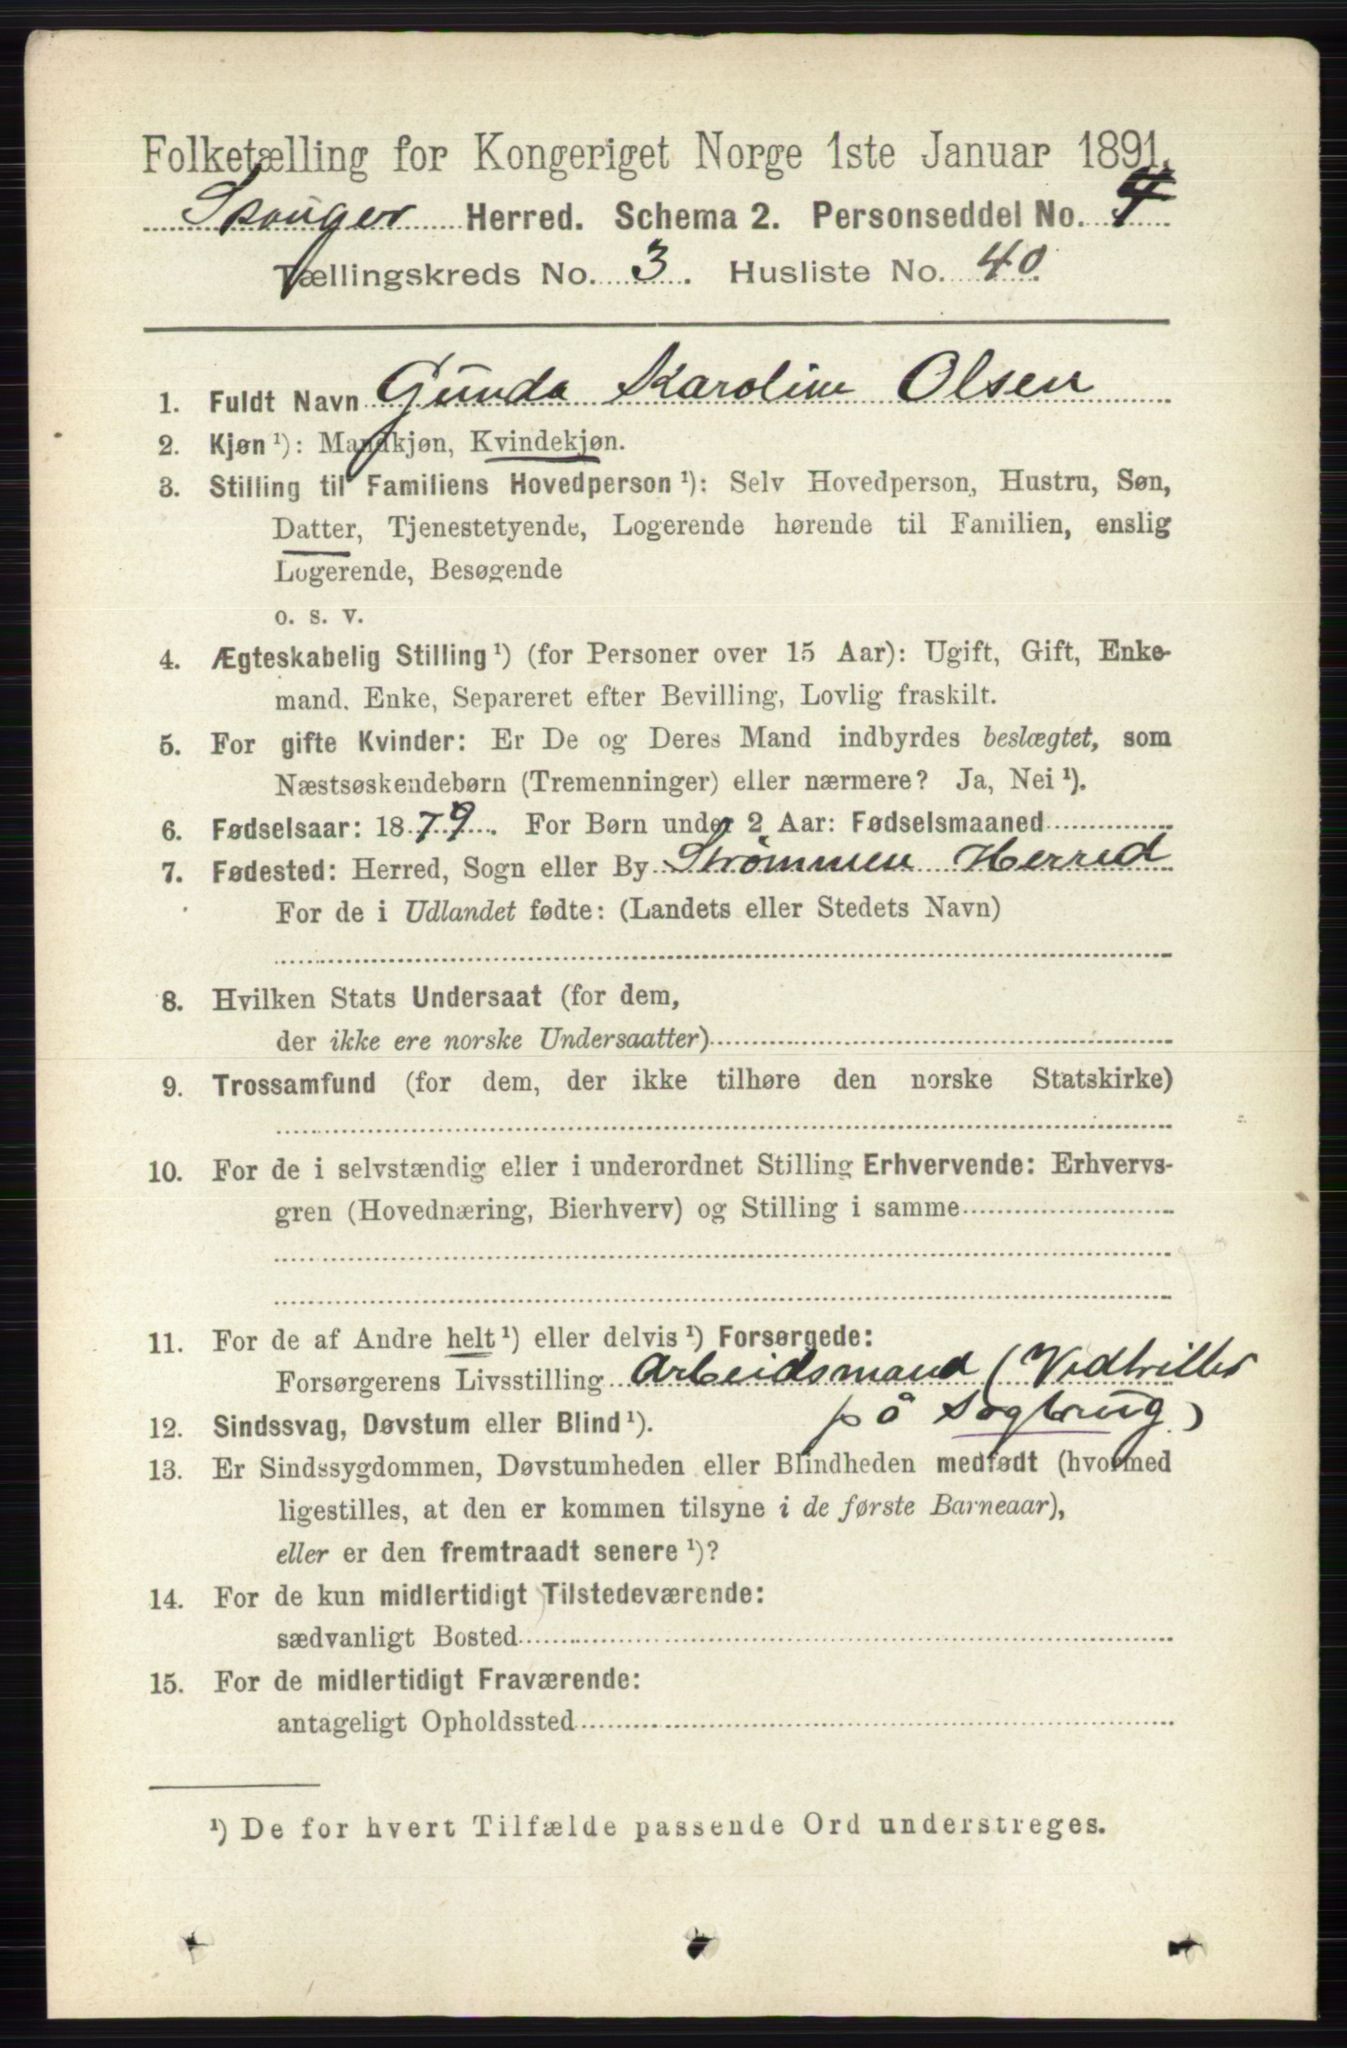 Folketælling for Kongeriget Norge 1ste Januar 1891.
Skouger Herred. Schema 2. Personseddel No.
Tællingskreds No. 3. Husliste No. 40
1. Fuldt Navn Gunda Karoline Olsen
2. Kjøn ¹): Mandkjøn, Kvindekjøn.
3. Stilling til Familiens Hovedperson ¹): Selv Hovedperson, Hustru, Søn,
Datter, Tjenestetyende, Logerende hørende til Familien, enslig
Logerende, Besøgende
o. s. v.
4. Ægteskabelig Stilling ¹) (for Personer over 15 Aar): Ugift, Gift, Enke-
mand, Enke, Separeret efter Bevilling, Lovlig fraskilt.
5. For gifte Kvinder: Er De og Deres Mand indbyrdes beslægtet, som
Næstsøskendebørn (Tremenninger) eller nærmere? Ja, Nei ¹).
6. Fødselsaar: 1879. For Børn under 2 Aar: Fødselsmaaned
7. Fødested: Herred, Sogn eller By Strømmen Herred
For de i Udlandet fødte: (Landets eller Stedets Navn)
8. Hvilken Stats Undersaat (for dem,
der ikke ere norske Undersaatter)
9. Trossamfund (for dem, der ikke tilhøre den norske Statskirke)
10. For de i selvstændig eller i underordnet Stilling Erhvervende: Erhvervs-
gren (Hovednæring, Bierhverv) og Stilling i samme
11. For de af Andre helt ¹) eller delvis ¹) Forsørgede:
Forsørgerens Livsstilling Arbeidsmand (Vedtriller
på Sagbrug)
12. Sindssvag, Døvstum eller Blind ¹).
13. Er Sindssygdommen, Døvstumheden eller Blindheden medfødt (hvormed
ligestilles, at den er kommen tilsyne i de første Barneaar),
eller er den fremtraadt senere ¹)?
14. For de kun midlertidigt Tilstedeværende:
sædvanligt Bosted
15. For de midlertidigt Fraværende:
antageligt Opholdssted
¹) De for hvert Tilfælde passende Ord understreges.